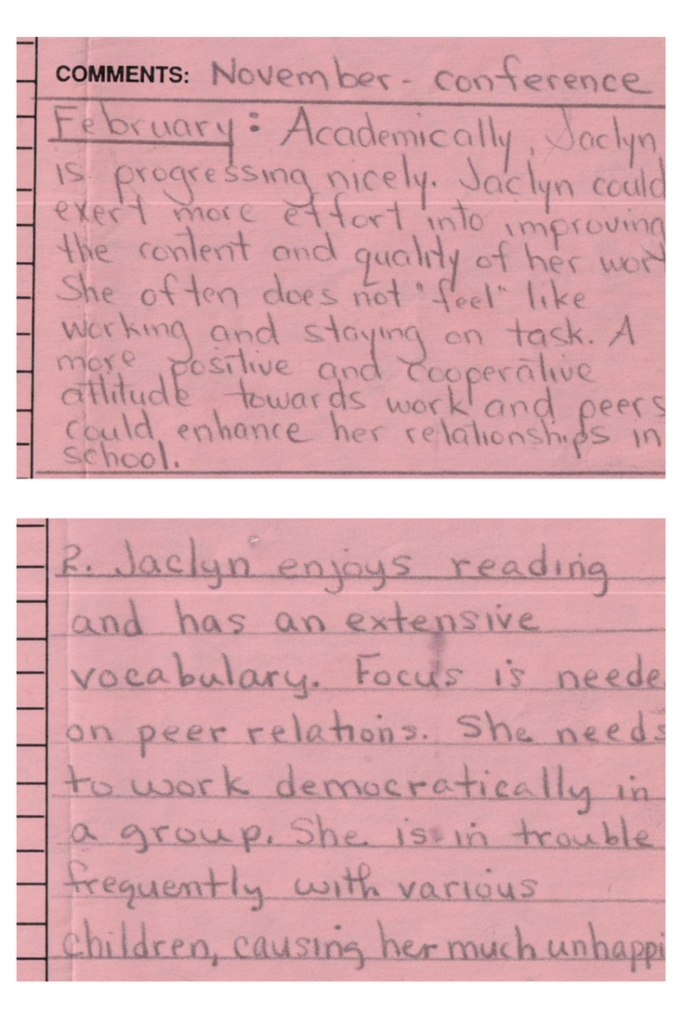 COMMENTS: November - conference
February: Academically, Jaclyn
is progressing nicely. Jaclyn could
exert more effort into improving
the content and quality of her wor
She often does not "feel" like
working and staying on task. A
more positive and cooperative
attitude towards work and peers
could enhance her relationships in
school.
2. Jaclyn enjoys reading
and has an extensive
vocabulary. Focus is neede
on peer relations. She needs
to work democratically in
a group. She is in trouble
frequently with various
children, causing her much unhappi